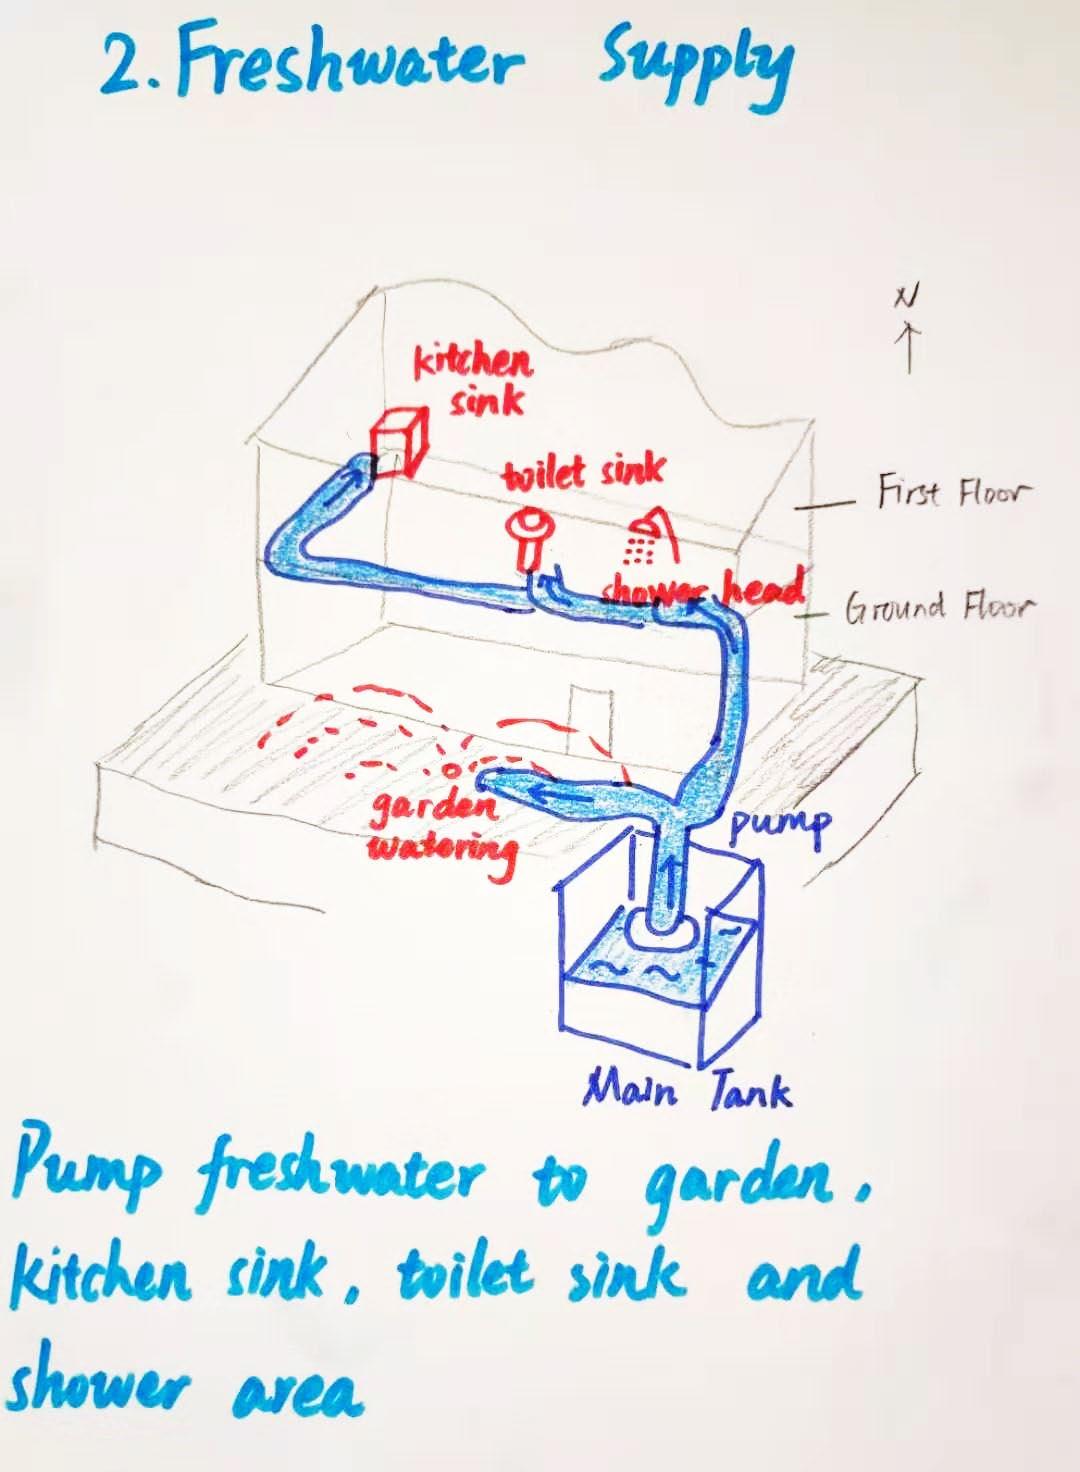 2. Freshwater Supply
N
kitchen
sink
toilet sink
First Floor
shower head
Ground Floor
garden
watering
pump
Main Tank
Pump freshwater to garden,
kitchen sink, toilet sink and
shower area